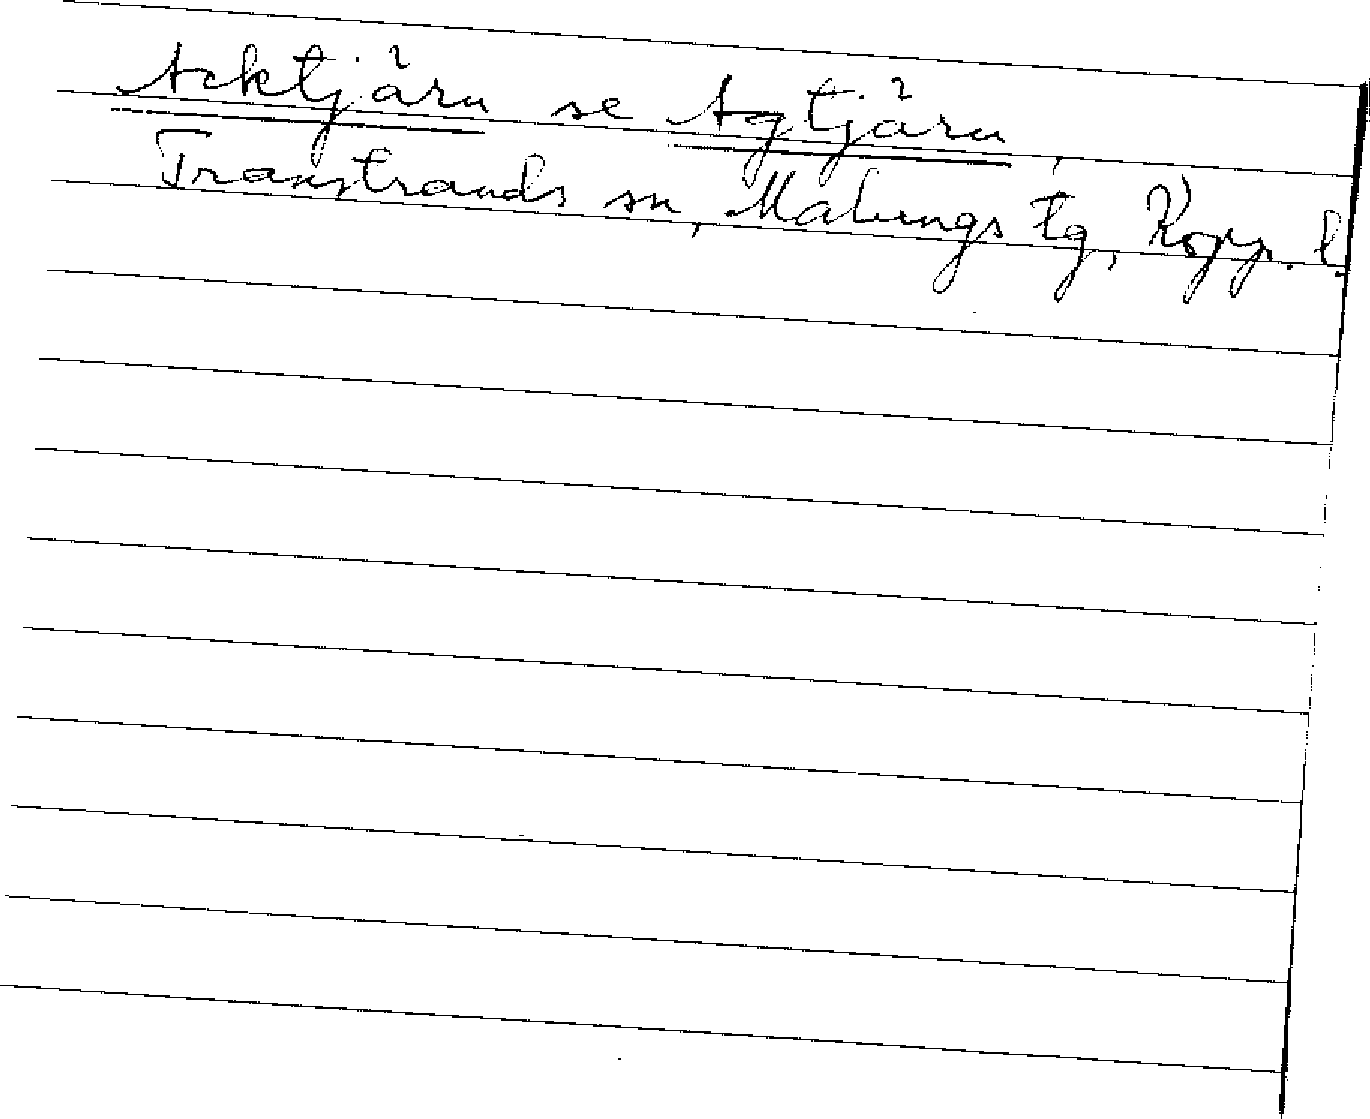 Acktjärn se Agtjärn,
Transtrands sn, Malungs tg, Kopp. l.